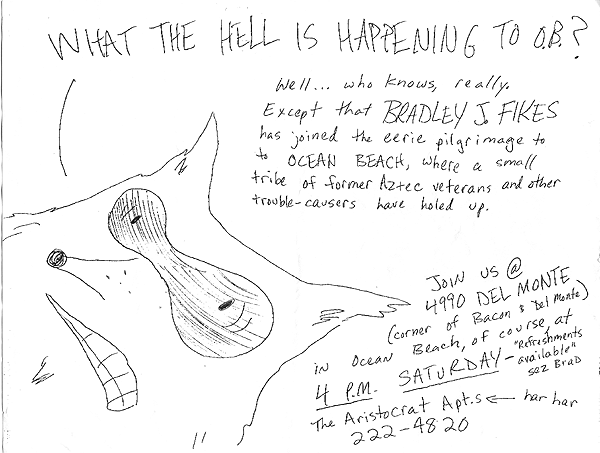 WHAT THE HELL IS HAPPENING TO O.B.?
Well... who knows, really.
Except that BRADLEY J. FIKES
has joined the eerie pilgrimage to
to OCEAN BEACH, where a small
tribe of former Aztec veterans and other
trouble-causers have holed up.
JOIN US @
4990 DEL MONTE
(corner of Bacon & Del Monte)
in Ocean Beach, of course, at
4 P.M. SATURDAY - "Refreshments
available"
sez Brad
The Aristocrat Apt.s ← har har
222-4820